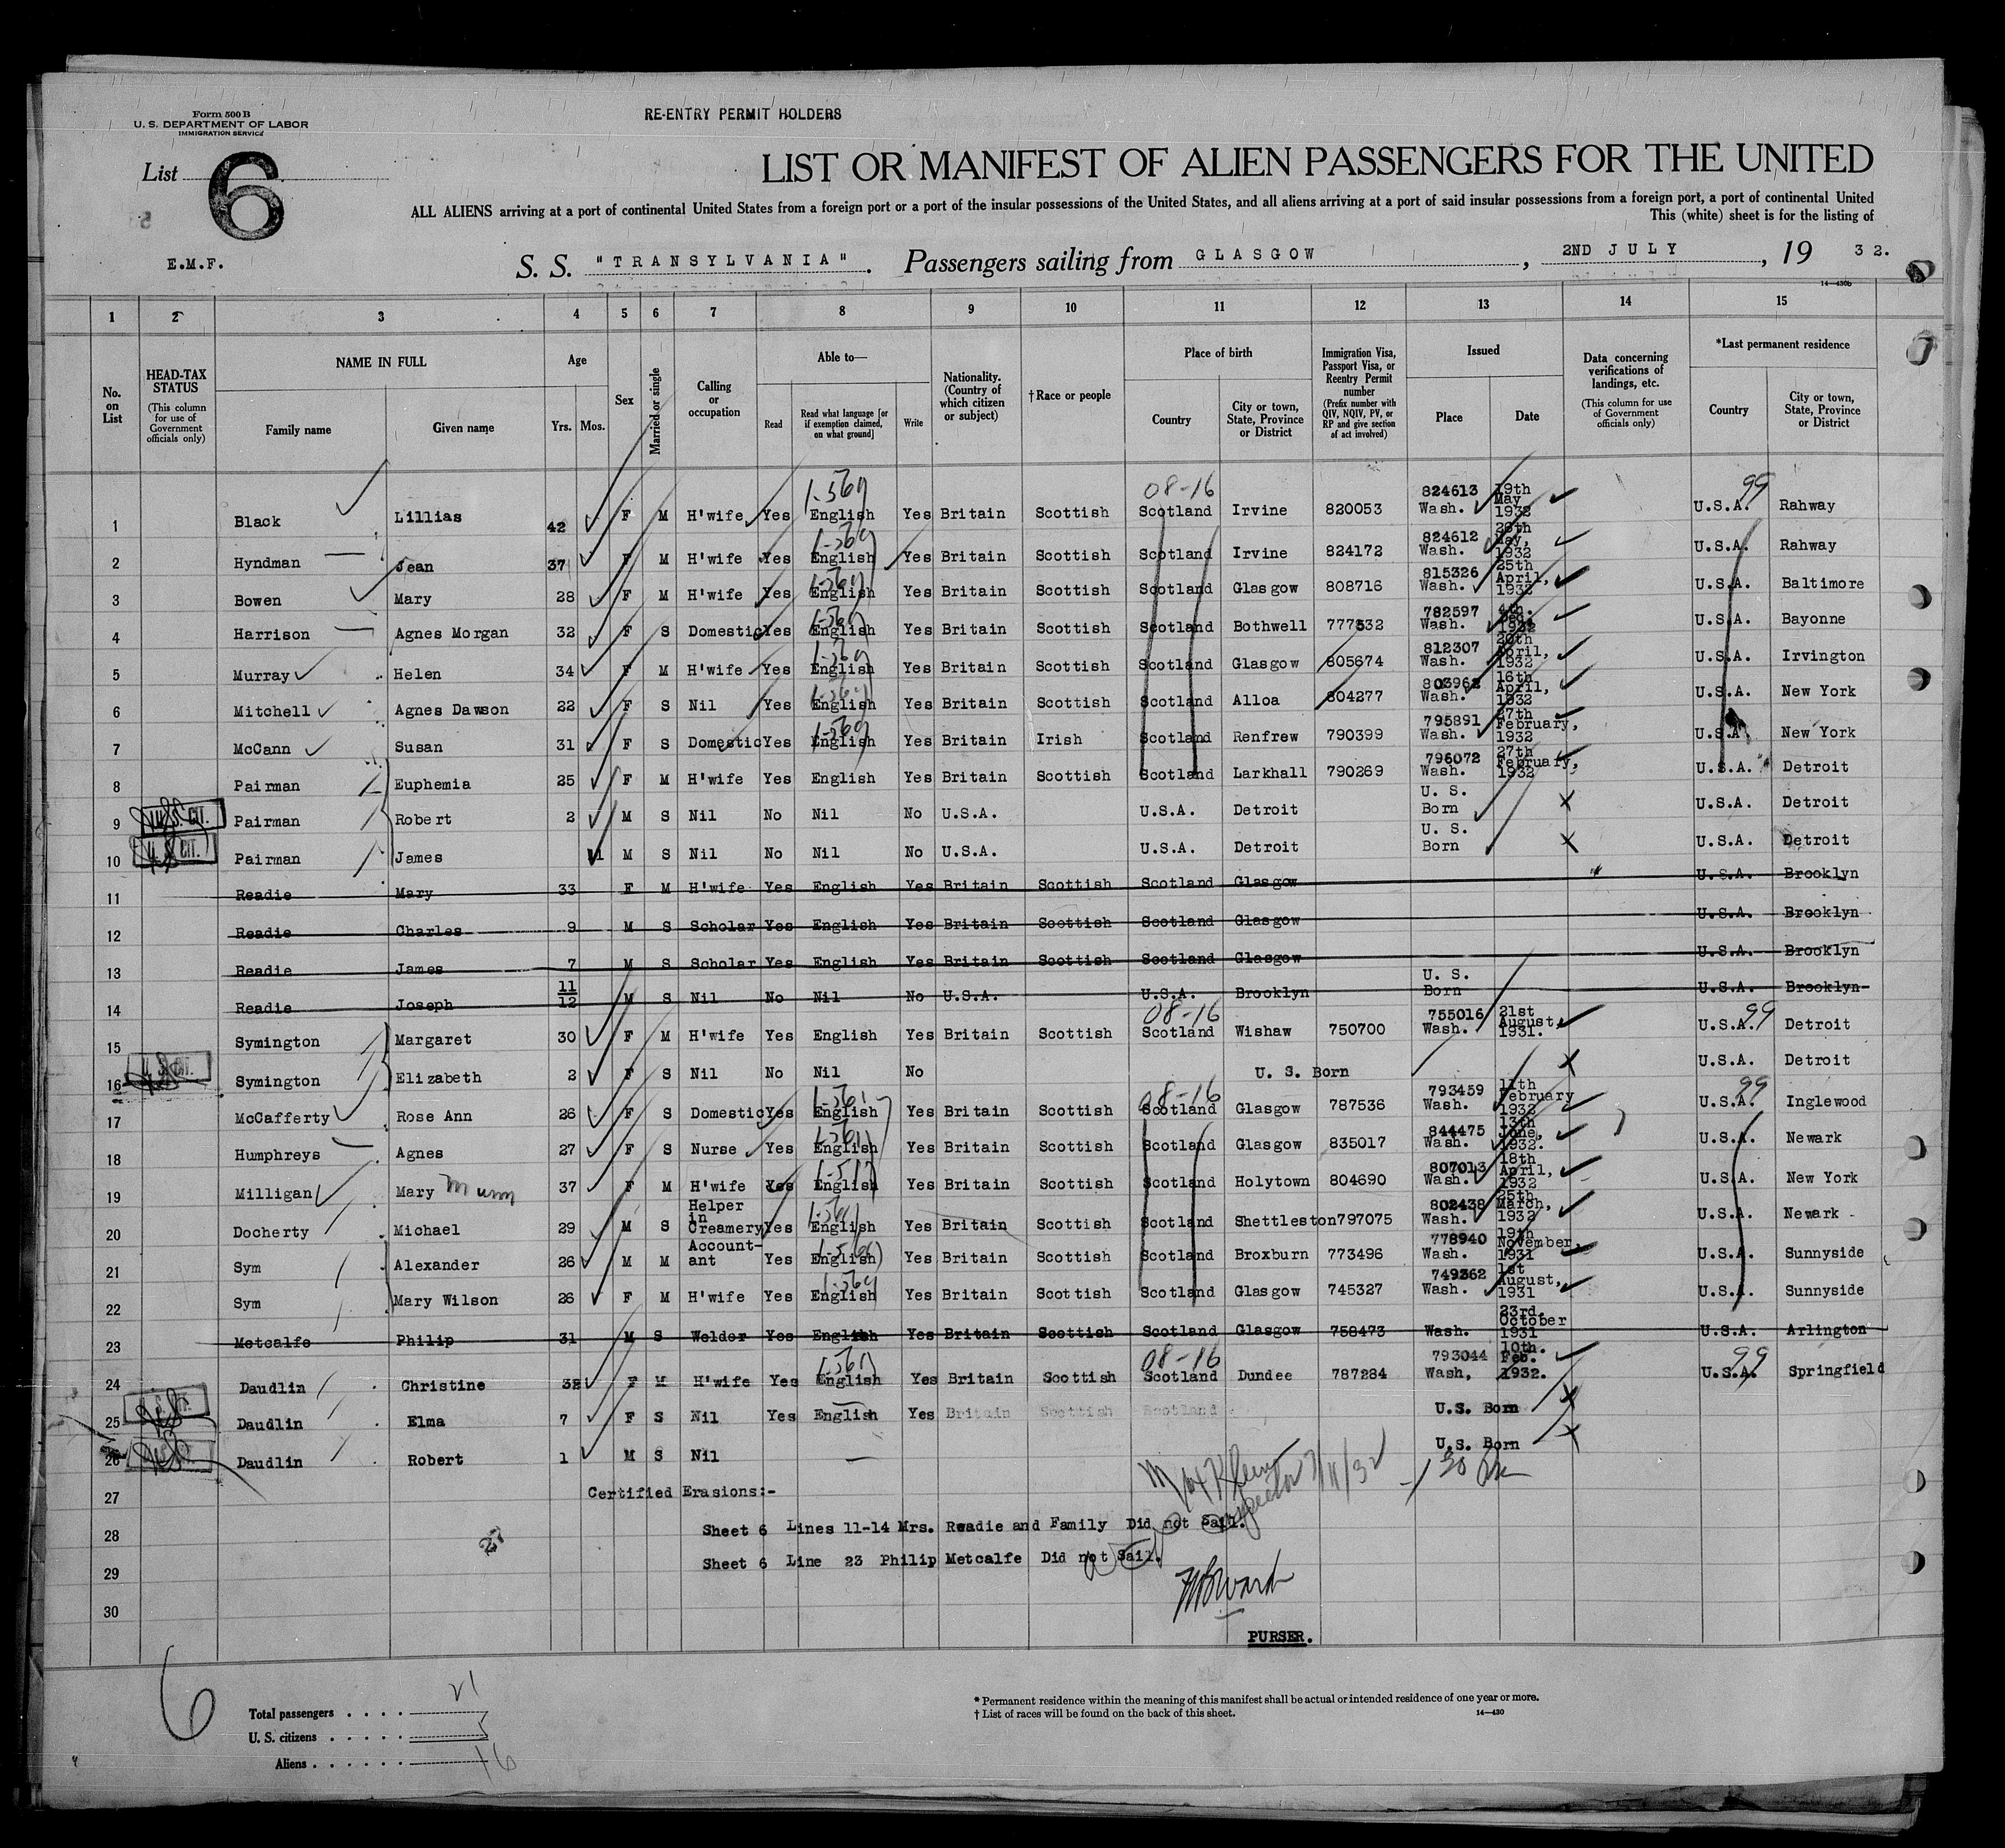 Form 500 B
U. S. DEPARTMENT OF LABOR
IMMIGRATION SERVICE
RE-ENTRY PERMIT HOLDERS
List 6
LIST OR MANIFEST OF ALIEN PASSENGERS FOR THE UNITED
ALL ALIENS arriving at a port of continental United States from a foreign port or a port of the insular possessions of the United States, and all aliens arriving at a port of said insular possessions from a foreign port, a port of continental United
This (white) sheet is for the listing of
E.M.F.
S. S. "TRANSYLVANIA". Passengers sailing from GLASGOW, 2ND JULY, 19 32.
14-430b
1 2 3 4 5 6 7 8 9 10 11 12 13 14 15
No. on List
HEAD-TAX STATUS (This column for use of Government officials only)
NAME IN FULL Family name Given name
Age Yrs. Mos.
Sex
Married or single
Calling or occupation
Able to— Read Read what language [or if exemption claimed, on what ground] Write
Nationality. (Country of which citizen or subject)
†Race or people
Place of birth Country City or town, State, Province or District
Immigration Visa, Passport Visa, or Reentry Permit number (Prefix number with QIV, NQIV, PV, or RP and give section of act involved)
Issued Place Date
Data concerning verifications of landings, etc. (This column for use of Government officials only)
*Last permanent residence Country City or town, State, Province or District
1 Black Lillias 42 F M H'wife Yes English Yes Britain Scottish 08-16 Scotland Irvine 820053 824613 Wash. 19th May 1932 99 U.S.A. Rahway
2 Hyndman Jean 37 F M H'wife Yes English Yes Britain Scottish Scotland Irvine 824172 824612 Wash. May, 1932 U.S.A. Rahway
3 Bowen Mary 28 F M H'wife Yes English Yes Britain Scottish Scotland Glasgow 808716 815326 Wash. 25th April, 1932 U.S.A. Baltimore
4 Harrison Agnes Morgan 32 F S Domestic Yes English Yes Britain Scottish Scotland Bothwell 777532 782597 Wash. 4th. 1932 U.S.A. Bayonne
5 Murray Helen 34 F M H'wife Yes English Yes Britain Scottish Scotland Glasgow 805674 812307 Wash. 20th April, 1932 U.S.A. Irvington
6 Mitchell Agnes Dawson 22 F S Nil Yes English Yes Britain Scottish Scotland Alloa 804277 803962 Wash. 16th April, 1932 U.S.A. New York
7 McCann Susan 31 F S Domestic Yes English Yes Britain Irish Scotland Renfrew 790399 795891 Wash. 27th February, 1932 U.S.A. New York
8 Pairman Euphemia 25 F M H'wife Yes English Yes Britain Scottish Scotland Larkhall 790269 796072 Wash. 27th February, 1932 U.S.A. Detroit
9 U.S. CIT. Pairman Robert 2 M S Nil No Nil No U.S.A. U.S.A. Detroit U. S. Born U.S.A. Detroit
10 U.S. CIT. Pairman James 11 M S Nil No Nil No U.S.A. U.S.A. Detroit U. S. Born U.S.A. Detroit
11 Readie Mary 33 F M H'wife Yes English Yes Britain Scottish Scotland Glasgow U.S.A. Brooklyn
12 Readie Charles 9 M S Scholar Yes English Yes Britain Scottish Scotland Glasgow U.S.A. Brooklyn
13 Readie James 7 M S Scholar Yes English Yes Britain Scottish Scotland Glasgow U.S.A. Brooklyn
14 Readie Joseph 11/12 M S Nil No Nil No U.S.A. U.S.A. Brooklyn U. S. Born U.S.A. Brooklyn
15 Symington Margaret 30 F M H'wife Yes English Yes Britain Scottish 08-16 Scotland Wishaw 750700 755016 Wash. 21st August, 1931. 99 U.S.A. Detroit
16 U.S. CIT. Symington Elizabeth 2 F S Nil No Nil No U. S. Born U.S.A. Detroit
17 McCafferty Rose Ann 26 F S Domestic Yes English Yes Britain Scottish 08-16 Scotland Glasgow 787536 793459 Wash. 11th February 1932 99 U.S.A. Inglewood
18 Humphreys Agnes 27 F S Nurse Yes English Yes Britain Scottish Scotland Glasgow 835017 844475 Wash. 13th June, 1932. U.S.A. Newark
19 Milligan Mary Munn 37 F M H'wife Yes English Yes Britain Scottish Scotland Holytown 804690 807013 Wash. 18th April, 1932 U.S.A. New York
20 Docherty Michael 29 M S Helper in Creamery Yes English Yes Britain Scottish Scotland Shettleston 797075 802438 Wash. 25th March, 1932 U.S.A. Newark
21 Sym Alexander 26 M M Account-ant Yes English Yes Britain Scottish Scotland Broxburn 773496 778940 Wash. 19th November, 1931 U.S.A. Sunnyside
22 Sym Mary Wilson 26 F M H'wife Yes English Yes Britain Scottish Scotland Glasgow 745327 749362 Wash. 1st August, 1931 U.S.A. Sunnyside
23 Metcalfe Philip 31 M S Welder Yes English Yes Britain Scottish Scotland Glasgow 758473 Wash. 23rd. October 1931 U.S.A. Arlington
24 Daudlin Christine 32 F M H'wife Yes English Yes Britain Scottish 08-16 Scotland Dundee 787284 793044 Wash, 10th. Feb. 1932. 99 U.S.A. Springfield
25 Daudlin Elma 7 F S Nil Yes English Yes Britain Scottish Scotland U.S. Born
26 Daudlin Robert 1 M S Nil — U.S. Born
27 Certified Erasions:-
28 Sheet 6 Lines 11-14 Mrs. Readie and Family Did not Sail.
29 Sheet 6 Line 23 Philip Metcalfe Did not Sail.
30
PURSER.
6
Total passengers 21
U. S. citizens 5
Aliens 16
* Permanent residence within the meaning of this manifest shall be actual or intended residence of one year or more.
† List of races will be found on the back of this sheet.
14-430